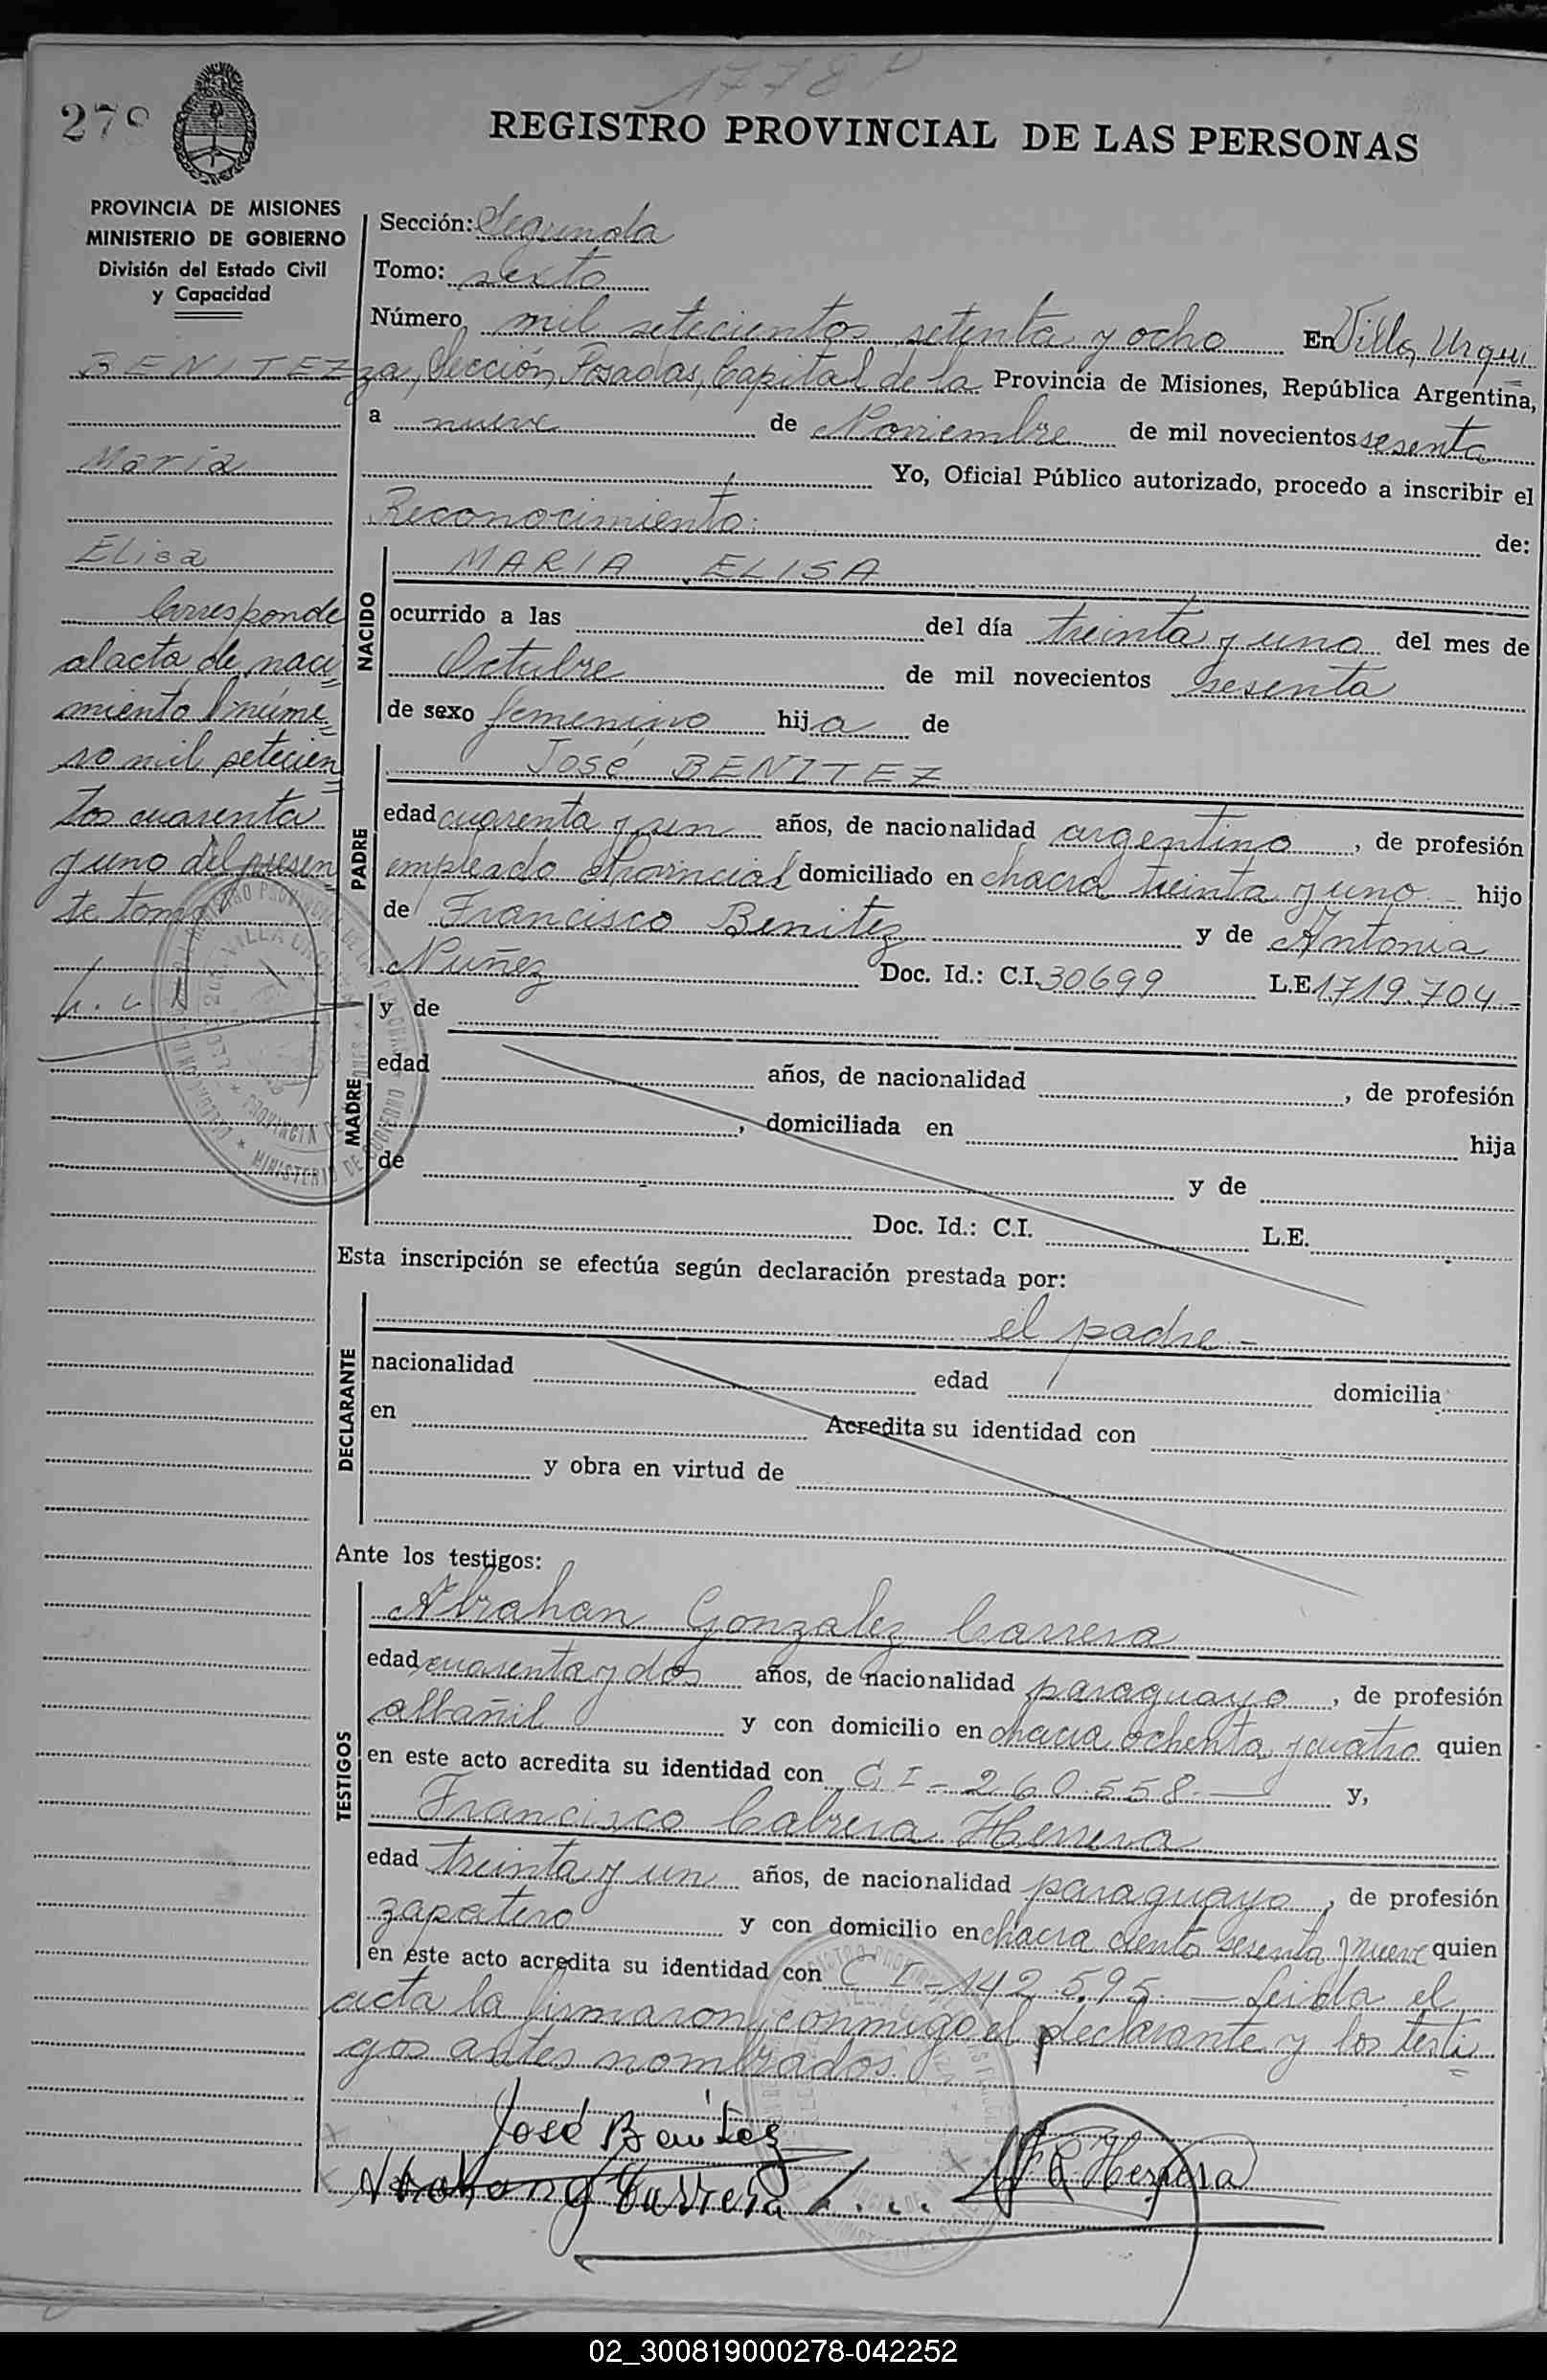 1778
278
REGISTRO PROVINCIAL DE LAS PERSONAS
PROVINCIA DE MISIONES
MINISTERIO DE GOBIERNO
División del Estado Civil
y Capacidad
BENITEZ
María
Elisa
Corresponde
al acta de naci=
miento número
mil setecien=
tos cuarenta
y uno del presen=
te tomo
Sección: Segunda
Tomo: sexto
Número mil setecientos setenta y ocho En Villa Urqui=
za, Sección Posadas, Capital de la Provincia de Misiones, República Argentina,
a nueve de Noviembre de mil novecientos sesenta
Yo, Oficial Público autorizado, procedo a inscribir el
Reconocimiento: de:
NACIDO
MARIA ELISA
ocurrido a las del día treinta y uno del mes de
Octubre de mil novecientos sesenta
de sexo femenino hija de
PADRE
José BENITEZ
edad cuarenta y un años, de nacionalidad argentino, de profesión
empleado Provincial domiciliado en chacra treinta y uno - hijo
de Francisco Benitez y de Antonia
Nuñez Doc. Id.: C.I. 30699 L.E. 1719.704.-
MADRE
y de
edad años, de nacionalidad , de profesión
, domiciliada en hija
de y de
Doc. Id.: C.I. L.E.
Esta inscripción se efectúa según declaración prestada por:
DECLARANTE
el padre -
nacionalidad edad domicilia
en Acredita su identidad con
y obra en virtud de
Ante los testigos:
TESTIGOS
Abrahan Gonzalez Carrera
edad cuarenta y dos años, de nacionalidad paraguayo, de profesión
albañil y con domicilio en chacra ochenta y cuatro quien
en este acto acredita su identidad con C I - 260.558.- y,
Francisco Cabrera Herrera
edad treinta y un años, de nacionalidad paraguayo, de profesión
zapatero y con domicilio en chacra ciento sesenta y nueve quien
en este acto acredita su identidad con C I - 142.595.- Leida el
acta la firmaron conmigo el declarante y los testi=
gos antes nombrados.
José Benitez
Herrera
02_300819000278-042252